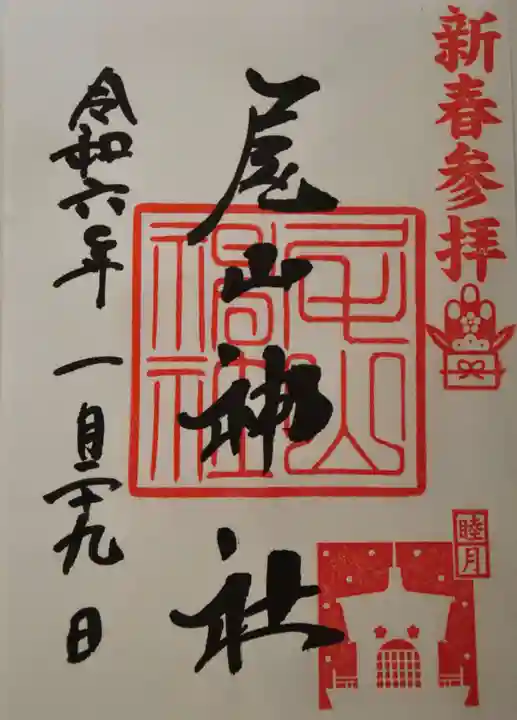 新春参拝
睦月
尾山神社
尾山神社
令和六年一月二十九日